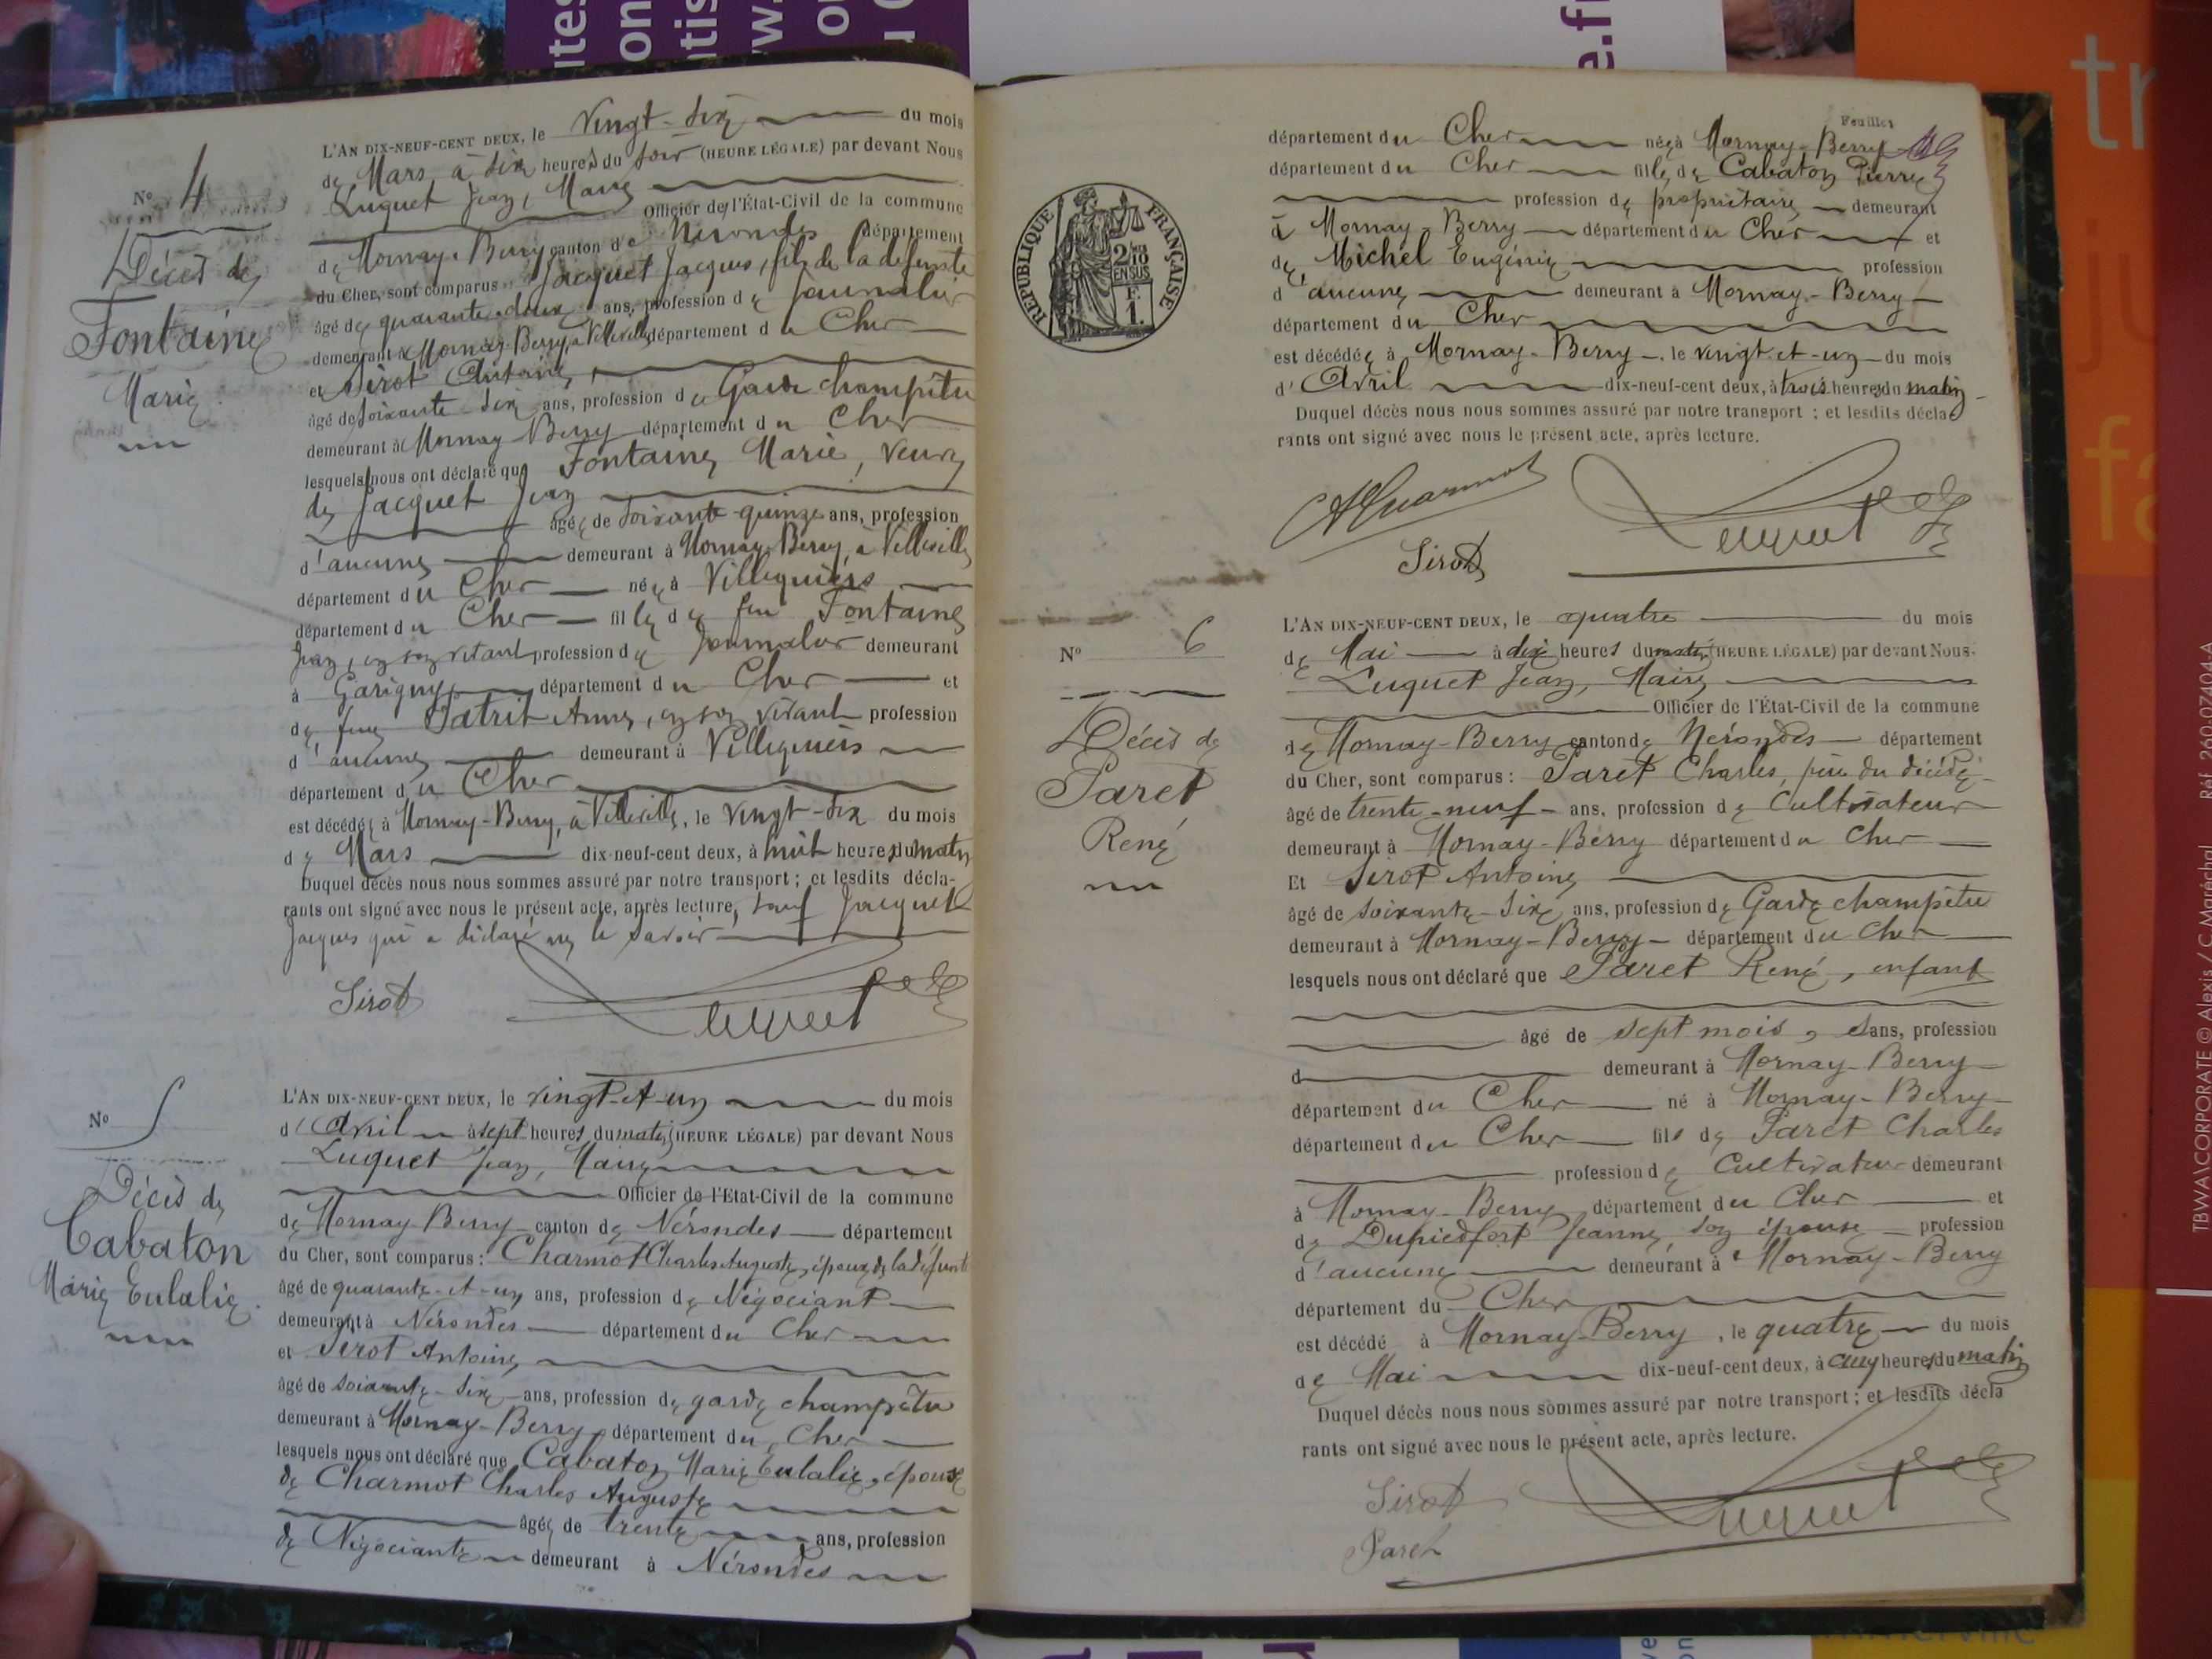 N° 4
Décès de
Fontaine
Marie
L'AN DIX-NEUF-CENT DEUX, le vingt-six du mois
de Mars à six heures du soir (HEURE LÉGALE) par devant Nous
Luquet Jean, Maire
Officier de l'État-Civil de la commune
de Mornay-Berry canton de Nérondes département
du Cher, sont comparus Jacquet Jacques, fils de la défunte
âgé de quarante-deux ans, profession de Journalier
demeurant à Mornay-Berry, à Villeville département du Cher
et Sirot Antoine,
âgé de soixante-six ans, profession de Garde champêtre
demeurant à Mornay-Berry département du Cher
lesquels nous ont déclaré que Fontaine Marie, veuve
de Jacquet Jean
âgée de soixante-quinze ans, profession
d'aucune demeurant à Mornay-Berry, à Villeville
département du Cher née à Villequiers
département du Cher fille de feu Fontaine
Jean, en son vivant profession de Journalier demeurant
à Garigny département du Cher et
de feue Patrit Anne, en son vivant profession
d'aucune demeurant à Villequiers
département du Cher
est décédée à Mornay-Berry, à Villeville, le vingt-six du mois
de Mars dix-neuf-cent deux, à huit heures du matin
Duquel décès nous nous sommes assuré par notre transport ; et lesdits décla-
rants ont signé avec nous le présent acte, après lecture, sauf Jacquet
Jacques qui a déclaré ne le savoir
Sirot Luquet
N° 5
Décès de
Cabaton
Marie Eulalie.
L'AN DIX-NEUF-CENT DEUX, le vingt-et-un du mois
d'Avril à sept heures du matin (HEURE LÉGALE) par devant Nous
Luquet Jean, Maire
Officier de l'État-Civil de la commune
de Mornay-Berry canton de Nérondes département
du Cher, sont comparus : Charmot Charles Auguste, époux de la défunte
âgé de quarante-et-un ans, profession de Négociant
demeurant à Nérondes département du Cher
et Sirot Antoine,
âgé de soixante-six ans, profession de garde champêtre
demeurant à Mornay-Berry département du Cher
lesquels nous ont déclaré que Cabaton Marie Eulalie, épouse
de Charmot Charles Auguste
âgée de trente ans, profession
de Négociante demeurant à Nérondes
Feuillet
département du Cher née à Mornay-Berry
département du Cher fille de Cabaton Pierre
profession de propriétaire demeurant
à Mornay-Berry département du Cher et
de Michel Eugénie profession
d'aucune demeurant à Mornay-Berry
département du Cher
est décédée à Mornay-Berry, le vingt-et-un du mois
d'Avril dix-neuf-cent deux, à trois heures du matin
Duquel décès nous nous sommes assuré par notre transport ; et lesdits décla
rants ont signé avec nous le présent acte, après lecture.
Charmot Luquet
Sirot
RÉPUBLIQUE FRANÇAISE
2/10
EN SUS
F.
1.
N° 6
Décès de
Paret
René
L'AN DIX-NEUF-CENT DEUX, le quatre du mois
de Mai à dix heures du matin (HEURE LÉGALE) par devant Nous
Luquet Jean, Maire
Officier de l'État-Civil de la commune
de Mornay-Berry canton de Nérondes département
du Cher, sont comparus : Paret Charles, père du décédé
âgé de trente-neuf ans, profession de Cultivateur
demeurant à Mornay-Berry département du Cher
Et Sirot Antoine
âgé de soixante-six ans, profession de Garde champêtre
demeurant à Mornay-Berry département du Cher
lesquels nous ont déclaré que Paret René, enfant
âgé de sept mois, sans, profession
d demeurant à Mornay-Berry
département du Cher né à Mornay-Berry
département du Cher fils de Paret Charles
profession de Cultivateur demeurant
à Mornay-Berry département du Cher et
de Dupiedfort Jeanne, son épouse profession
d'aucune demeurant à Mornay-Berry
département du Cher
est décédé à Mornay-Berry, le quatre du mois
de Mai dix-neuf-cent deux, à cinq heures du matin
Duquel décès nous nous sommes assuré par notre transport ; et lesdits décla
rants ont signé avec nous le présent acte, après lecture.
Sirot Luquet
Paret
TBWA\CORPORATE © Alexis / C.Maréchal Réf. 2607/404-A